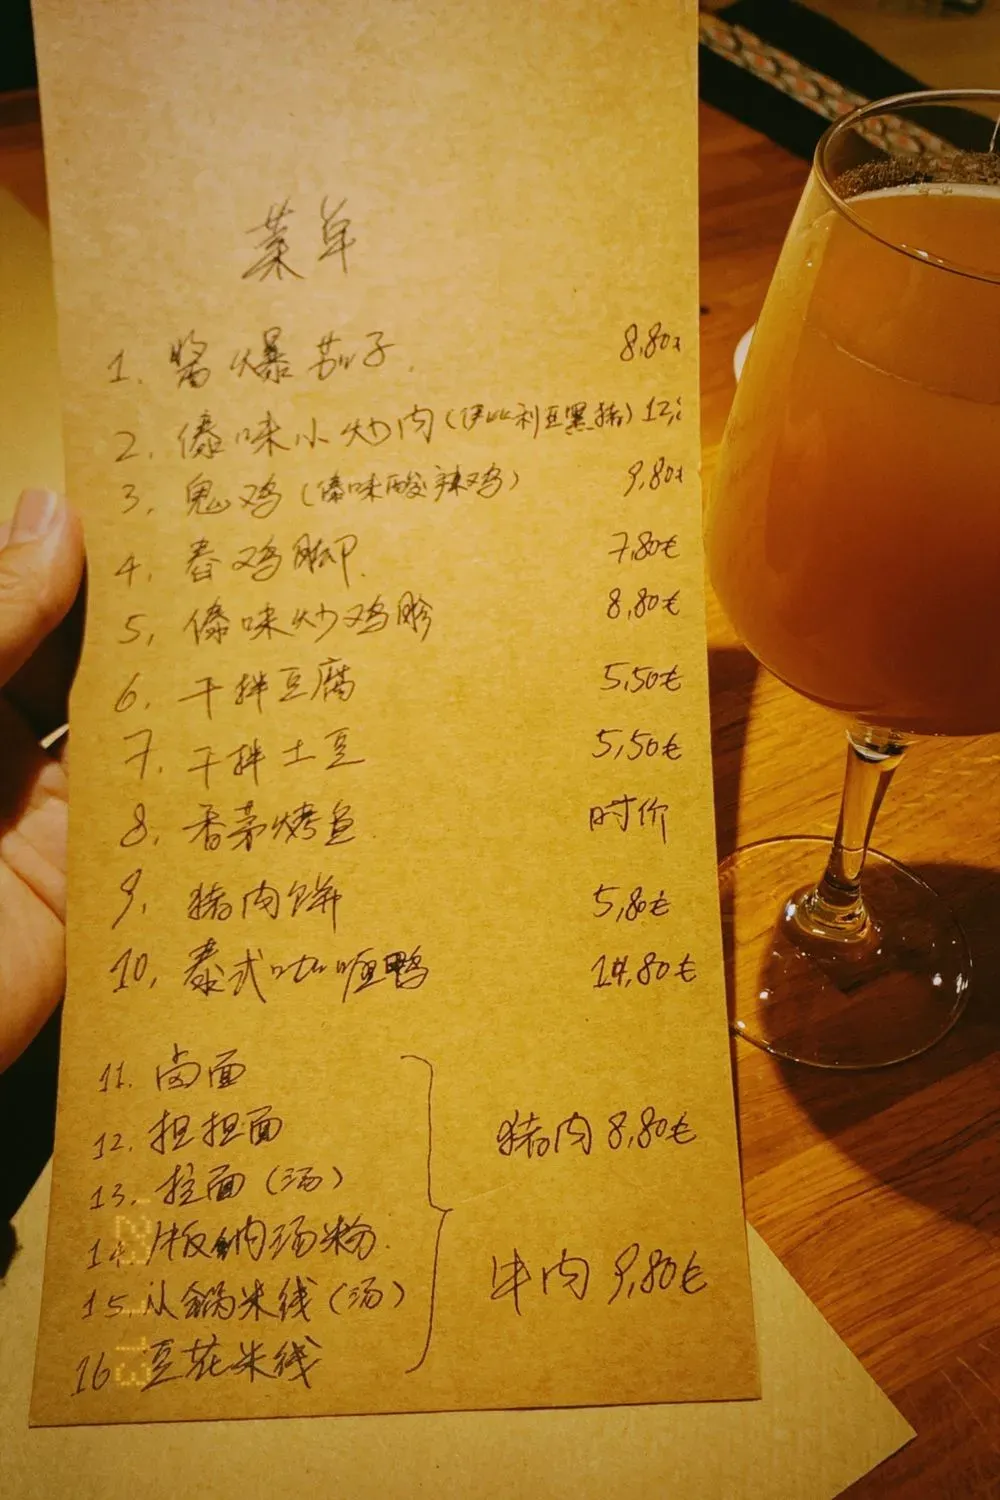 菜单
1. 酱爆茄子. 8,80
2. 傣味小炒肉(伊比利亚黑猪) 12,
3. 鬼鸡(傣味酸辣鸡) 9,80
4. 舂鸡脚. 7,80€
5, 傣味炒鸡胗 8,80€
6. 干拌豆腐 5,50€
7. 干拌土豆 5,50€
8. 香茅烤鱼. 时价
9, 猪肉饼 5,80€
10, 泰式咖喱鸭 14,80€
11. 卤面
12. 担担面
13. 拉面(汤)
猪肉 8,80€
14. 版纳汤粉.
15. 小锅米线(汤)
牛肉 9,80€
16 豆花米线